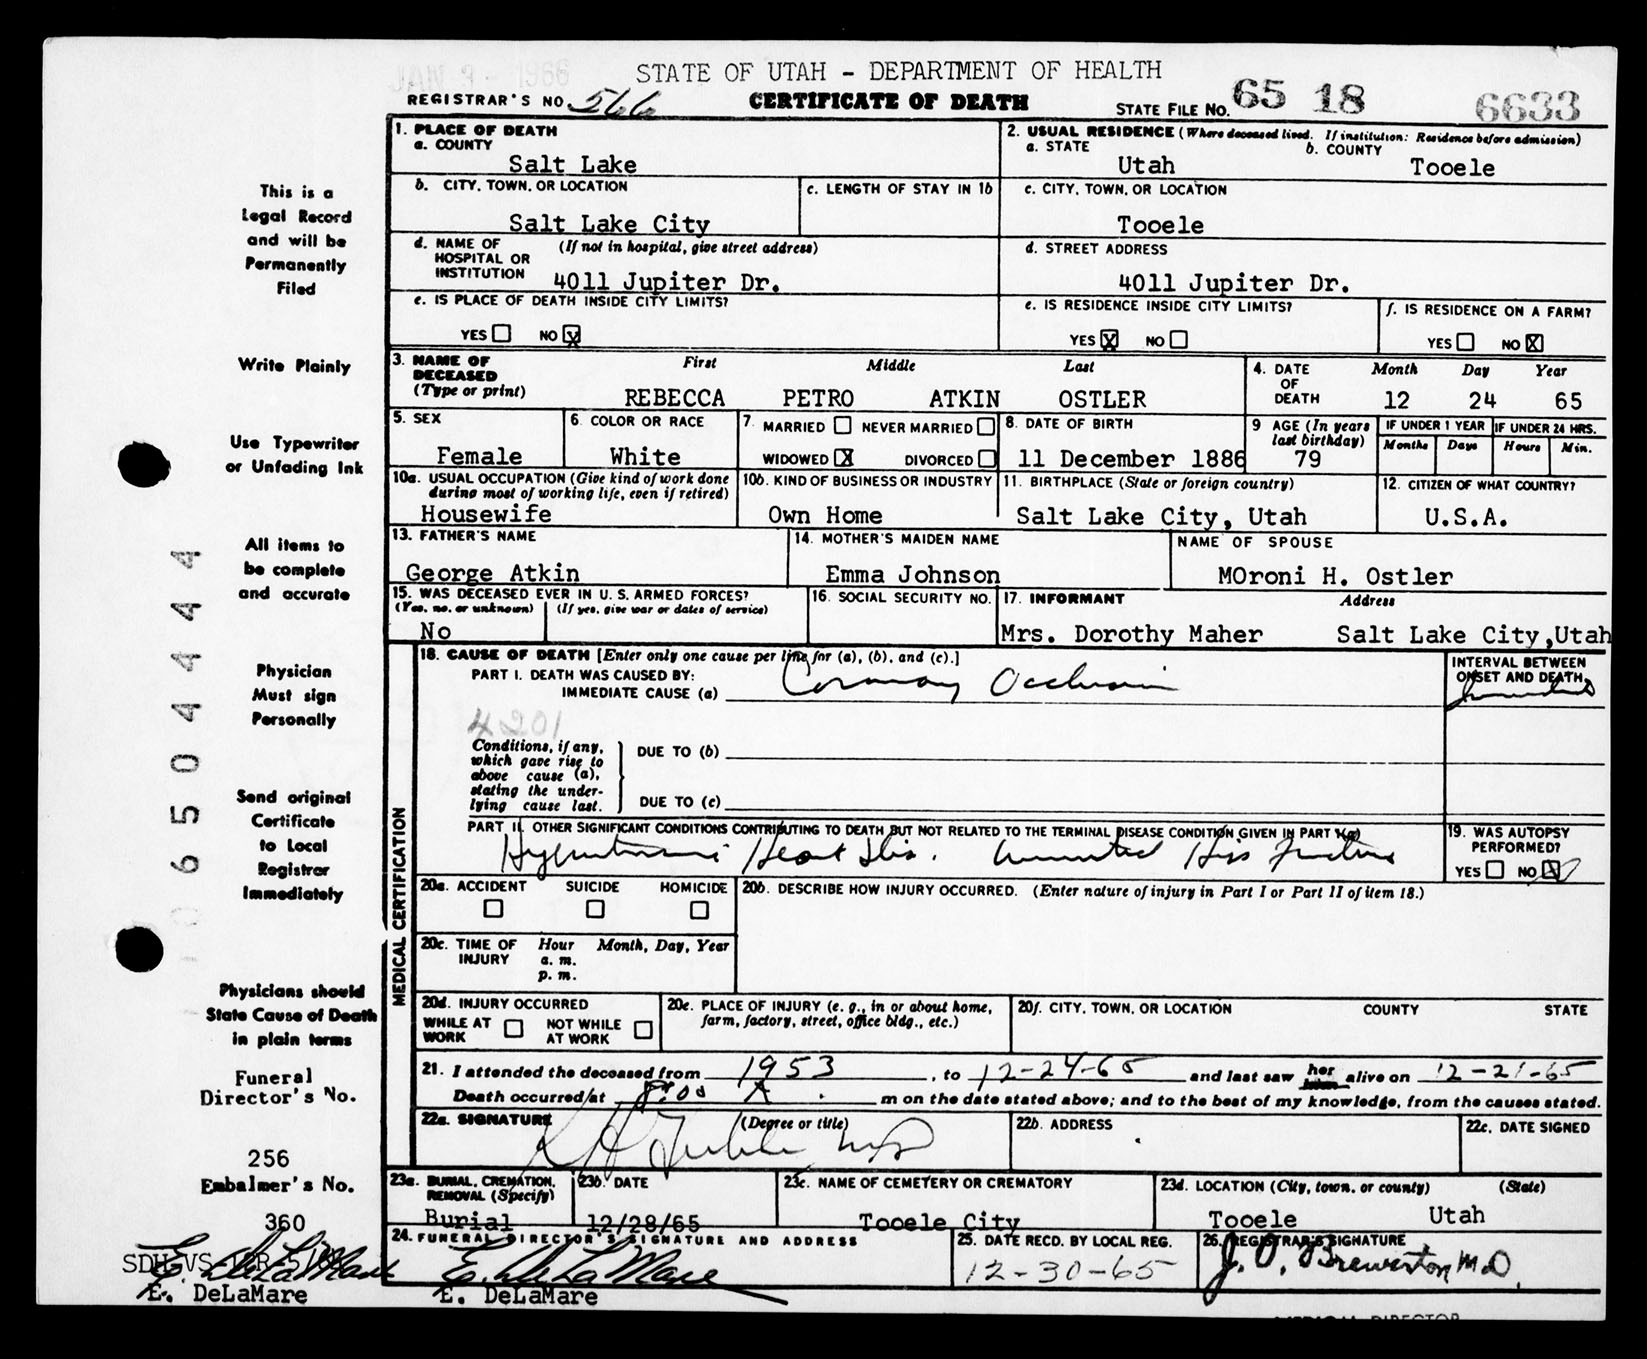 JAN 3 - 1966
STATE OF UTAH - DEPARTMENT OF HEALTH
REGISTRAR'S NO. 566 CERTIFICATE OF DEATH STATE FILE NO. 65 18 6633
This is a
Legal Record
and will be
Permanently
Filed
Write Plainly
Use Typewriter
or Unfading Ink
All items to
be complete
and accurate
Physician
Must sign
Personally
Send original
Certificate
to Local
Registrar
Immediately
Physicians should
State Cause of Death
in plain terms
Funeral
Director's No.
256
Embalmer's No.
360
E. DeLaMare
E. DeLaMare
06504444
1. PLACE OF DEATH
a. COUNTY
Salt Lake
2. USUAL RESIDENCE (Where deceased lived. If institution: Residence before admission)
a. STATE b. COUNTY
Utah Tooele
b. CITY, TOWN, OR LOCATION c. LENGTH OF STAY IN 1b
Salt Lake City
c. CITY, TOWN, OR LOCATION
Tooele
d. NAME OF (If not in hospital, give street address)
HOSPITAL OR
INSTITUTION 4011 Jupiter Dr.
d. STREET ADDRESS
4011 Jupiter Dr.
e. IS PLACE OF DEATH INSIDE CITY LIMITS?
YES NO X
e. IS RESIDENCE INSIDE CITY LIMITS?
YES X NO
f. IS RESIDENCE ON A FARM?
YES NO X
3. NAME OF First Middle Last
DECEASED
(Type or print) REBECCA PETRO ATKIN OSTLER
4. DATE Month Day Year
OF
DEATH 12 24 65
5. SEX
Female
6. COLOR OR RACE
White
7. MARRIED NEVER MARRIED
WIDOWED X DIVORCED
8. DATE OF BIRTH
11 December 1886
9 AGE (In years
last birthday)
79
IF UNDER 1 YEAR IF UNDER 24 HRS.
Months Days Hours Min.
10a. USUAL OCCUPATION (Give kind of work done
during most of working life, even if retired)
Housewife
10b. KIND OF BUSINESS OR INDUSTRY
Own Home
11. BIRTHPLACE (State or foreign country)
Salt Lake City, Utah
12. CITIZEN OF WHAT COUNTRY?
U.S.A.
13. FATHER'S NAME
George Atkin
14. MOTHER'S MAIDEN NAME
Emma Johnson
NAME OF SPOUSE
MOroni H. Ostler
15. WAS DECEASED EVER IN U. S. ARMED FORCES?
(Yes, no, or unknown) (If yes, give war or dates of service)
No
16. SOCIAL SECURITY NO.
17. INFORMANT Address
Mrs. Dorothy Maher Salt Lake City,Utah
MEDICAL CERTIFICATION
18. CAUSE OF DEATH [Enter only one cause per line for (a), (b), and (c).]
PART I. DEATH WAS CAUSED BY:
IMMEDIATE CAUSE (a) Coronary Occlusion
INTERVAL BETWEEN
ONSET AND DEATH
4201
Conditions, if any,
which gave rise to
above cause (a),
stating the under-
lying cause last.
DUE TO (b)
DUE TO (c)
PART II. OTHER SIGNIFICANT CONDITIONS CONTRIBUTING TO DEATH BUT NOT RELATED TO THE TERMINAL DISEASE CONDITION GIVEN IN PART I(a)
Hypertensive Heart Dis. Hip Fracture
19. WAS AUTOPSY
PERFORMED?
YES NO X
20a. ACCIDENT SUICIDE HOMICIDE
20b. DESCRIBE HOW INJURY OCCURRED. (Enter nature of injury in Part I or Part II of item 18.)
20c. TIME OF Hour Month, Day, Year
INJURY a. m.
p. m.
20d. INJURY OCCURRED
WHILE AT NOT WHILE
WORK AT WORK
20e. PLACE OF INJURY (e. g., in or about home,
farm, factory, street, office bldg., etc.)
20f. CITY, TOWN, OR LOCATION COUNTY STATE
21. I attended the deceased from 1953, to 12-24-65 and last saw her alive on 12-21-65
Death occurred at 8:00 A. m on the date stated above; and to the best of my knowledge, from the causes stated.
22a. SIGNATURE (Degree or title)
22b. ADDRESS
22c. DATE SIGNED
23a. BURIAL, CREMATION,
REMOVAL (Specify)
Burial
23b. DATE
12/28/65
23c. NAME OF CEMETERY OR CREMATORY
Tooele City
23d. LOCATION (City, town, or county) (State)
Tooele Utah
24. FUNERAL DIRECTOR'S SIGNATURE AND ADDRESS
E. DeLaMare
E. DeLaMare
25. DATE RECD. BY LOCAL REG.
12-30-65
26. REGISTRAR'S SIGNATURE
J. O. Brewerton M.D.
MEDICAL DIRECTOR